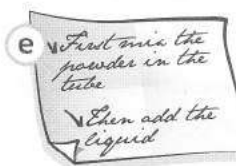 e
First mix the
powder in the
tube
Then add the
liquid